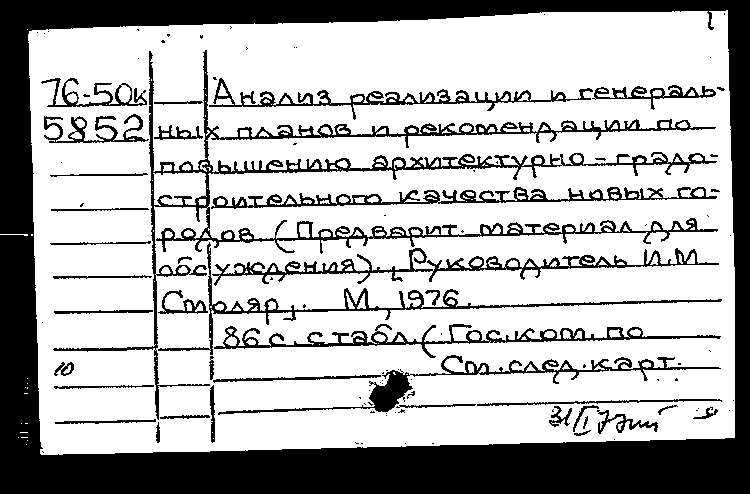 1
76-50к Анализ реализации и генераль-
5852 ных планов и рекомендации по
повышению архитектурно-градо-
строительного качества новых го-
родов (Предварит. материал для
обсуждения). [Руководитель И.М.
Столяр]. М., 1976.
86 с. с табл. (Гос. ком. по
10 См. след. карт.
31/I 77